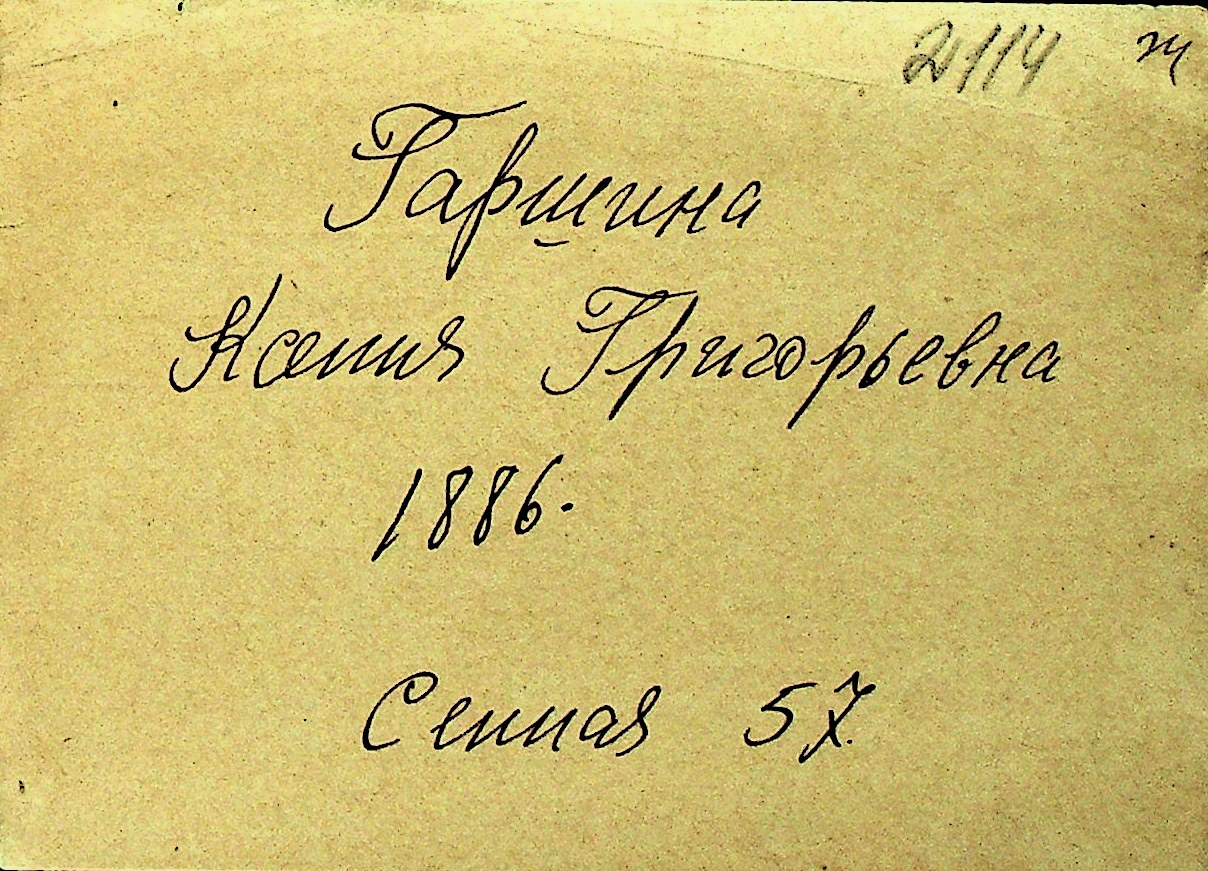 2114 ж
Гаршина
Ксения Григорьевна
1886.
Сенная 57.